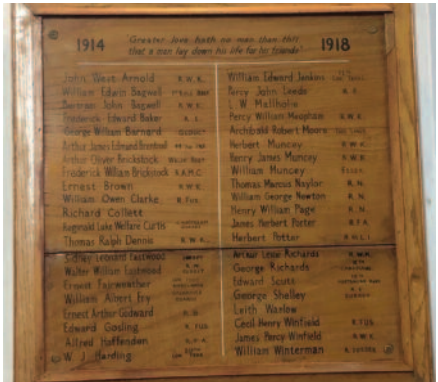 1914
"Greater love hath no man than this
that a man lay down his life for his friends"
1918
John West Arnold R.W.K.
William Edwin Bagwell
Bertram John Bagwell R.W.K.
Frederick Edward Baker R.E.
George William Barnard
Arthur James Edmund Brentnall
Arthur Oliver Brickstock
Frederick William Brickstock R.A.M.C.
Ernest Brown R.W.K.
William Owen Clarke R.Fus.
Richard Collett
Reginald Luke Welfare Curtis
Thomas Ralph Dennis R.W.K.
Sidney Leonard Eastwood
Walter William Eastwood
Ernest Fairweather
William Albert Fry
Ernest Arthur Godward
Edward Gosling R.FUS.
Alfred Haffenden
W. J. Harding
William Edward Jenkins
Percy John Leeds R.E.
L. W. Mallholie
Percy William Meopham R.W.K.
Archibald Robert Moore
Herbert Muncey R.W.K.
Henry James Muncey R.W.K.
William Muncey Essex.
Thomas Marcus Naylor R.N.
William George Newton R.N.
Henry William Page R.N.
James Herbert Porter R.F.A.
Herbert Potter R.M.L.I.
Arthur Leslie Richards
George Richards
Edward Scutts
George Shelley
Leith Warlow
Cecil Henry Winfield R.FUS.
James Percy Winfield R.W.K.
William Winterman R.SUSSEX